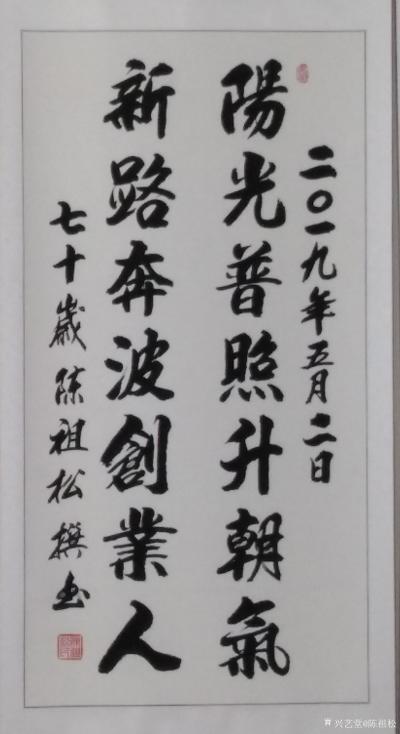 二〇一九年五月二日
陽光普照升朝氣
新路奔波創業人
七十歲陈祖松撰书
兴艺堂@陈祖松